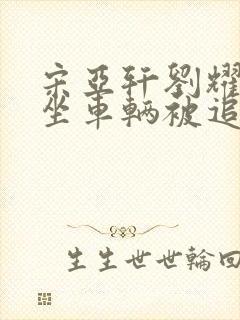 宋亚轩劉耀
坐車輛被追
生生世世輪回